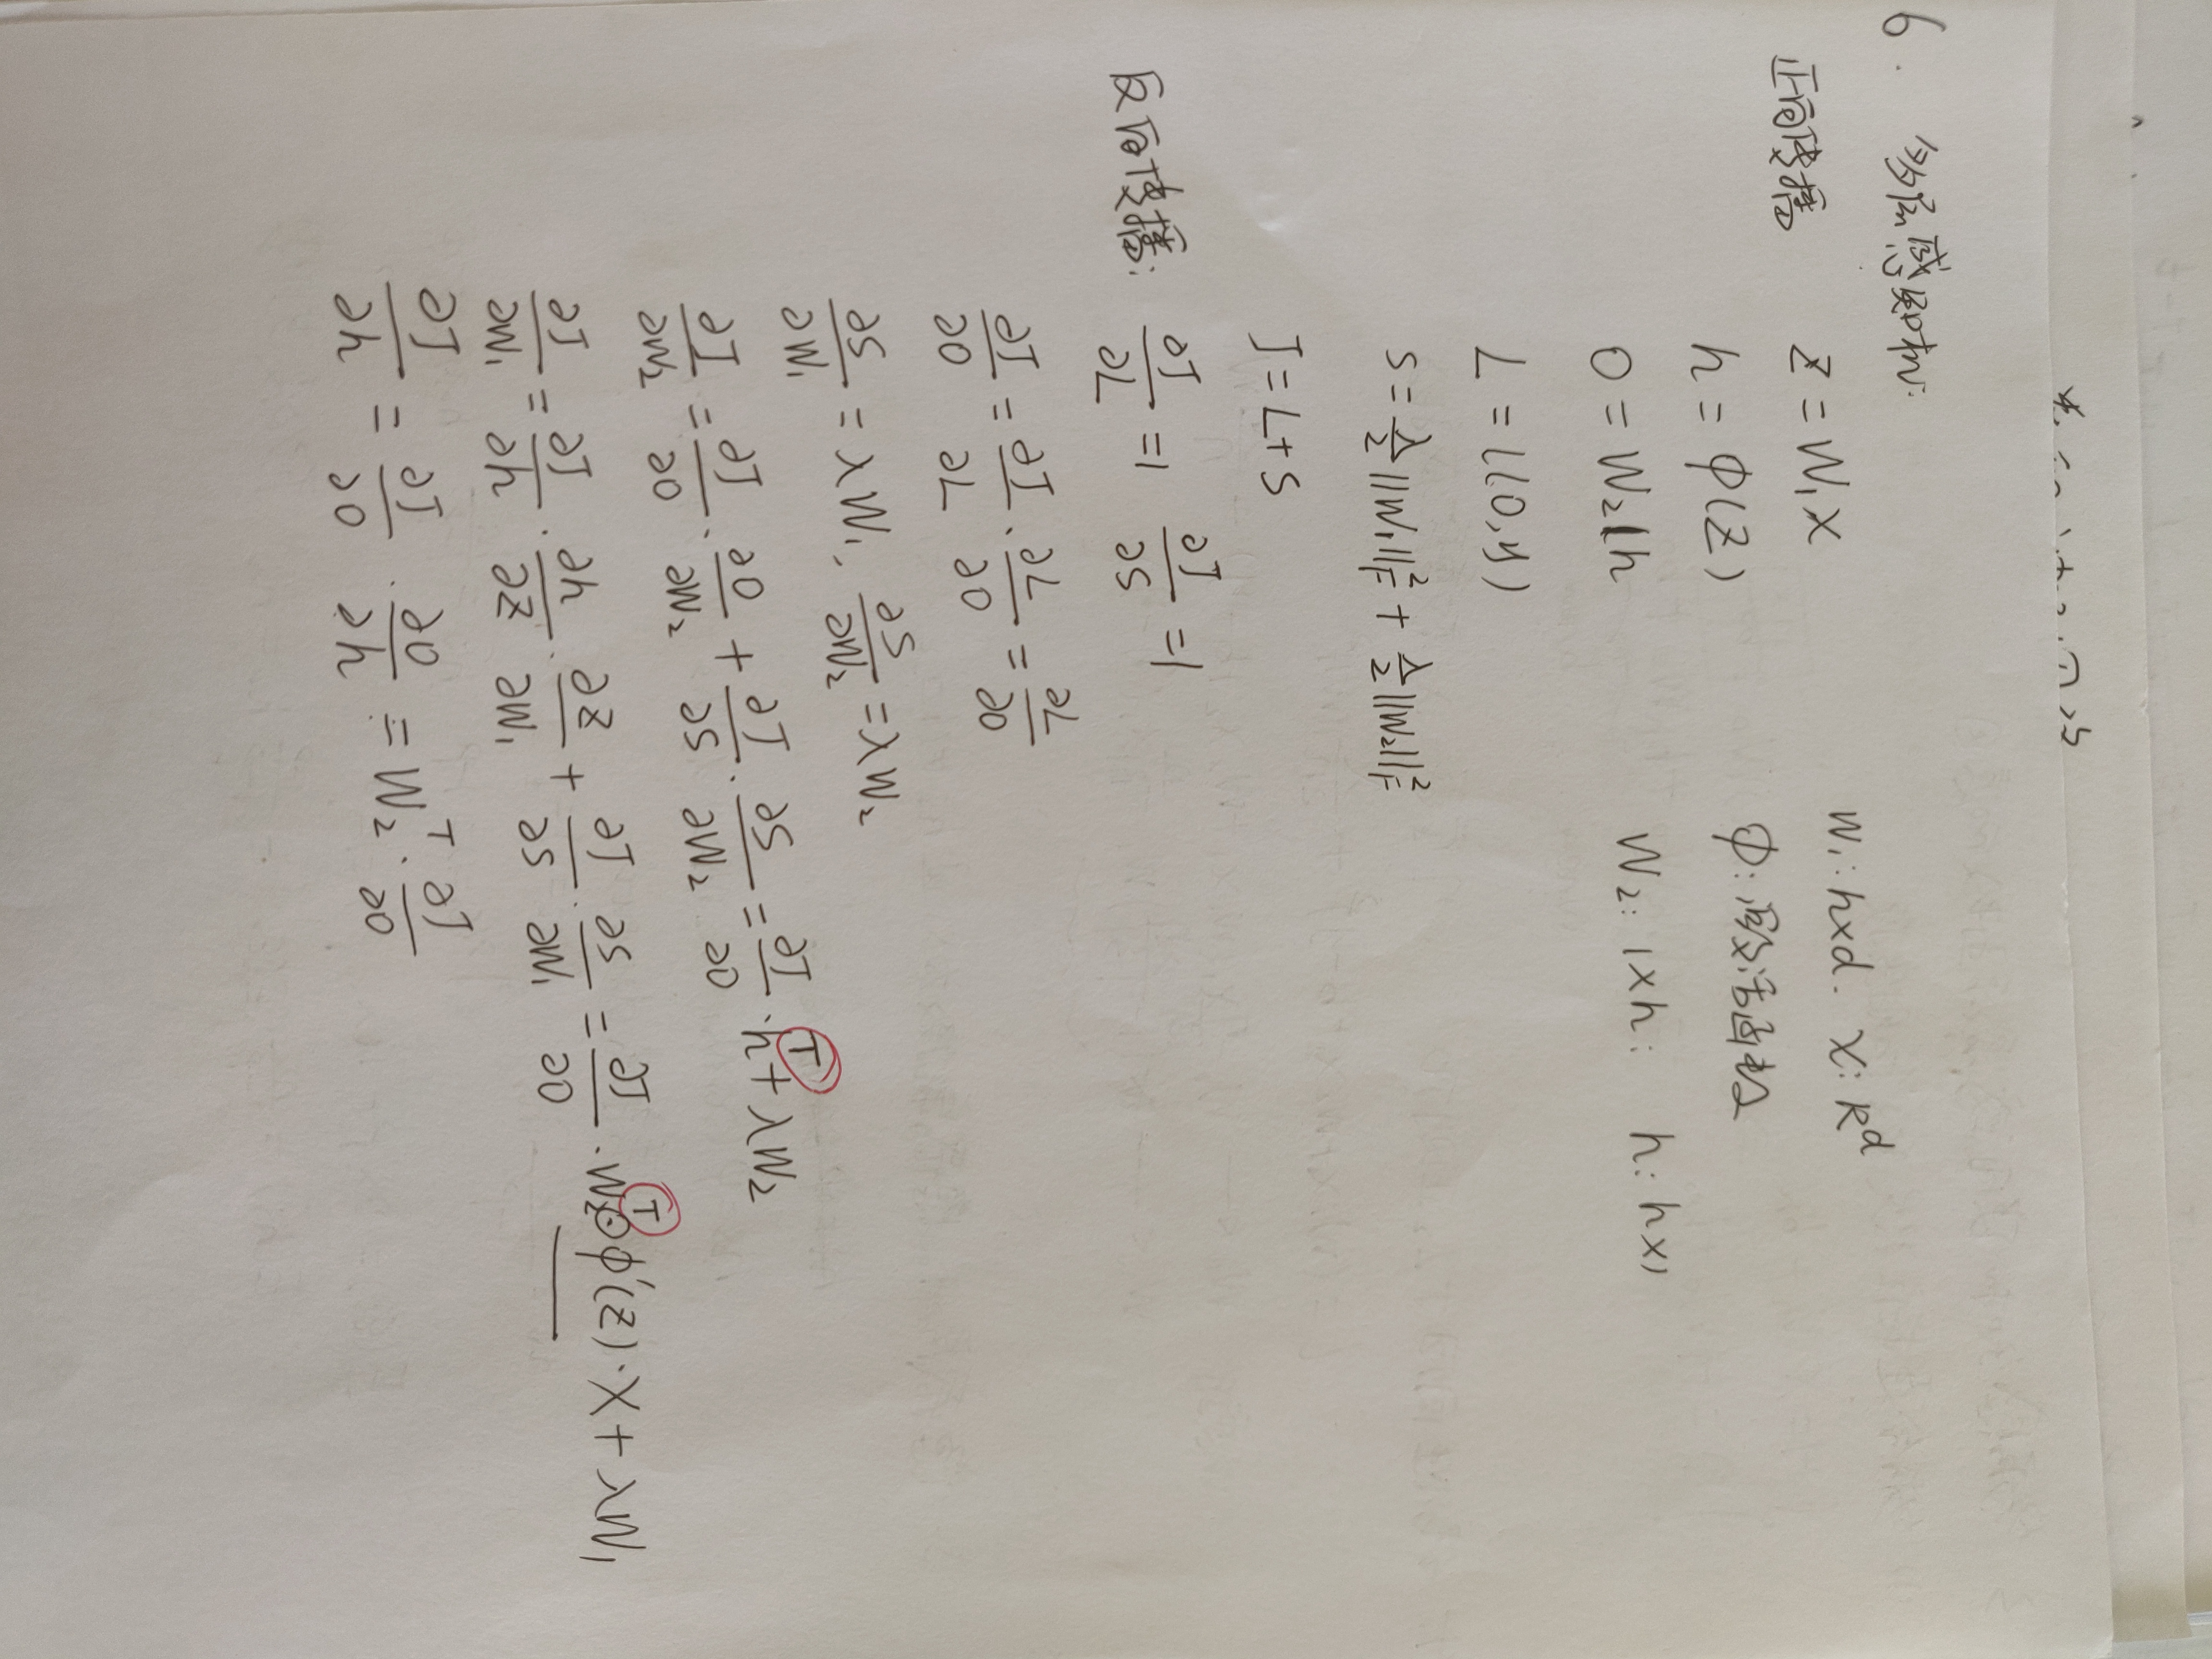 6. 多层感知机:
正向传播 z = W₁x W₁: h×d. x: R^d
h = φ(z) φ: 激活函数
O = W₂h W₂: 1×h; h: h×1
L = l(O, y)
s = λ/2 ||W₁||²_F + λ/2 ||W₂||²_F
J = L + s
反向传播: ∂J/∂L = 1 ∂J/∂s = 1
∂J/∂O = ∂J/∂L · ∂L/∂O = ∂L/∂O
∂s/∂W₁ = λW₁, ∂s/∂W₂ = λW₂
∂J/∂W₂ = ∂J/∂O · ∂O/∂W₂ + ∂J/∂s · ∂s/∂W₂ = ∂J/∂O · h^T + λW₂
∂J/∂W₁ = ∂J/∂h · ∂h/∂z · ∂z/∂W₁ + ∂J/∂s · ∂s/∂W₁ = ∂J/∂O · W₂^T ⊙ φ′(z) · x + λW₁
∂J/∂h = ∂J/∂O · ∂O/∂h = W₂^T · ∂J/∂O